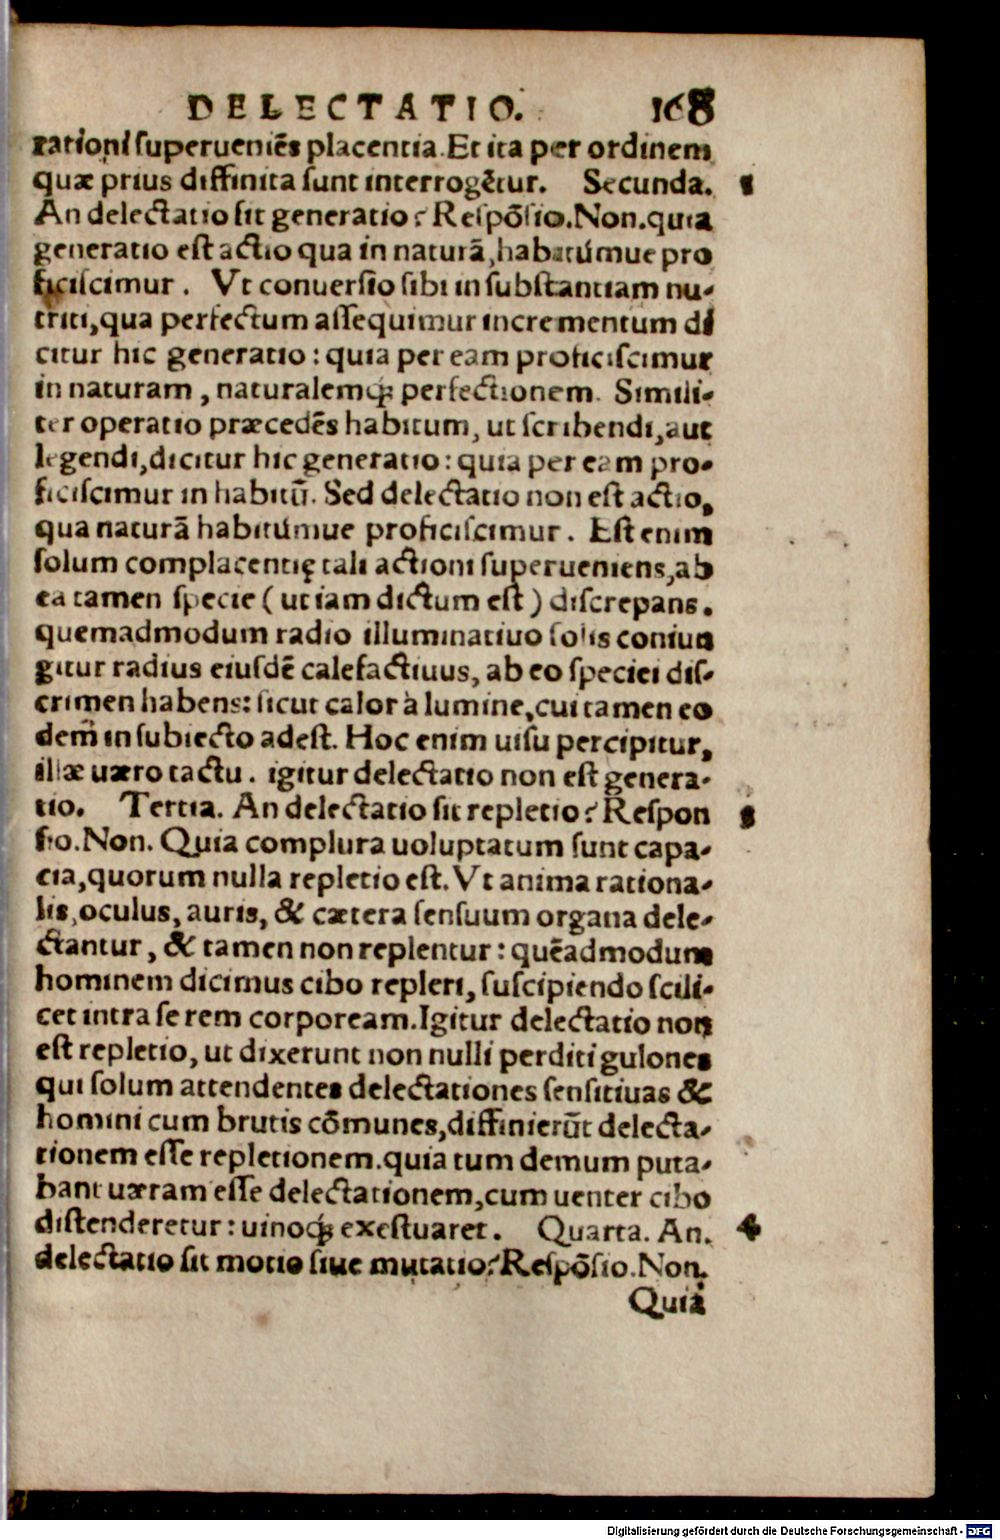 DELECTATIO. 168
rationi ſuperueniẽs placentia. Et ita per ordinem
quæ prius diffinita ſunt interrogẽtur. Secunda.
An delectatio ſit generatio? Reſpõſio. Non. quia
generatio eſt actio qua in naturã, habitúmue pro
ficiſcimur. Vt conuerſio ſibi in ſubſtantiam nu-
triti, qua perfectum aſſequimur incrementum di
citur hic generatio: quia per eam proficiſcimur
in naturam, naturalemq; perfectionem. Simili-
ter operatio præcedẽs habitum, ut ſcribendi, aut
legendi, dicitur hic generatio: quia per eam pro-
ficiſcimur in habitũ. Sed delectatio non eſt actio,
qua naturã habitúmue proficiſcimur. Eſt enim
ſolum complacentię tali actioni ſuperueniens, ab
ea tamen ſpecie (ut iam dictum eſt) diſcrepans.
quemadmodum radio illuminatiuo ſolis coniun
gitur radius eiuſdẽ calefactiuus, ab eo ſpeciei diſ-
crimen habens: ſicut calor à lumine, cui tamen eo
dem̃ in ſubiecto adeſt. Hoc enim uiſu percipitur,
illæ uæro tactu. igitur delectatio non eſt genera-
tio. Tertia. An delectatio ſit repletio? Reſpon
ſio. Non. Quia complura uoluptatum ſunt capa-
cia, quorum nulla repletio eſt. Vt anima rationa-
lis, oculus, auris, & cætera ſenſuum organa dele-
ctantur, & tamen non replentur: quẽadmodum
hominem dicimus cibo repleri, ſuſcipiendo ſcili-
cet intra ſe rem corpoream. Igitur delectatio non
eſt repletio, ut dixerunt non nulli perditi gulones
qui ſolum attendentes delectationes ſenſitiuas &
homini cum brutis cõmunes, diffinierũt delecta-
tionem eſſe repletionem. quia tum demum puta-
bant uærram eſſe delectationem, cum uenter cibo
diſtenderetur: uinoq; exeſtuaret. Quarta. An. 4
delectatio ſit motio ſiue mutatio? Reſpõſio. Non.
Quia
Digitalisierung gefördert durch die Deutsche Forschungsgemeinschaft - DFG